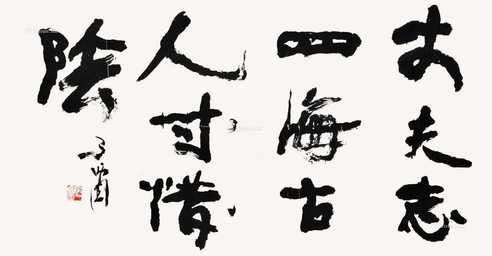 丈夫志
四海古
人寸惜
陰